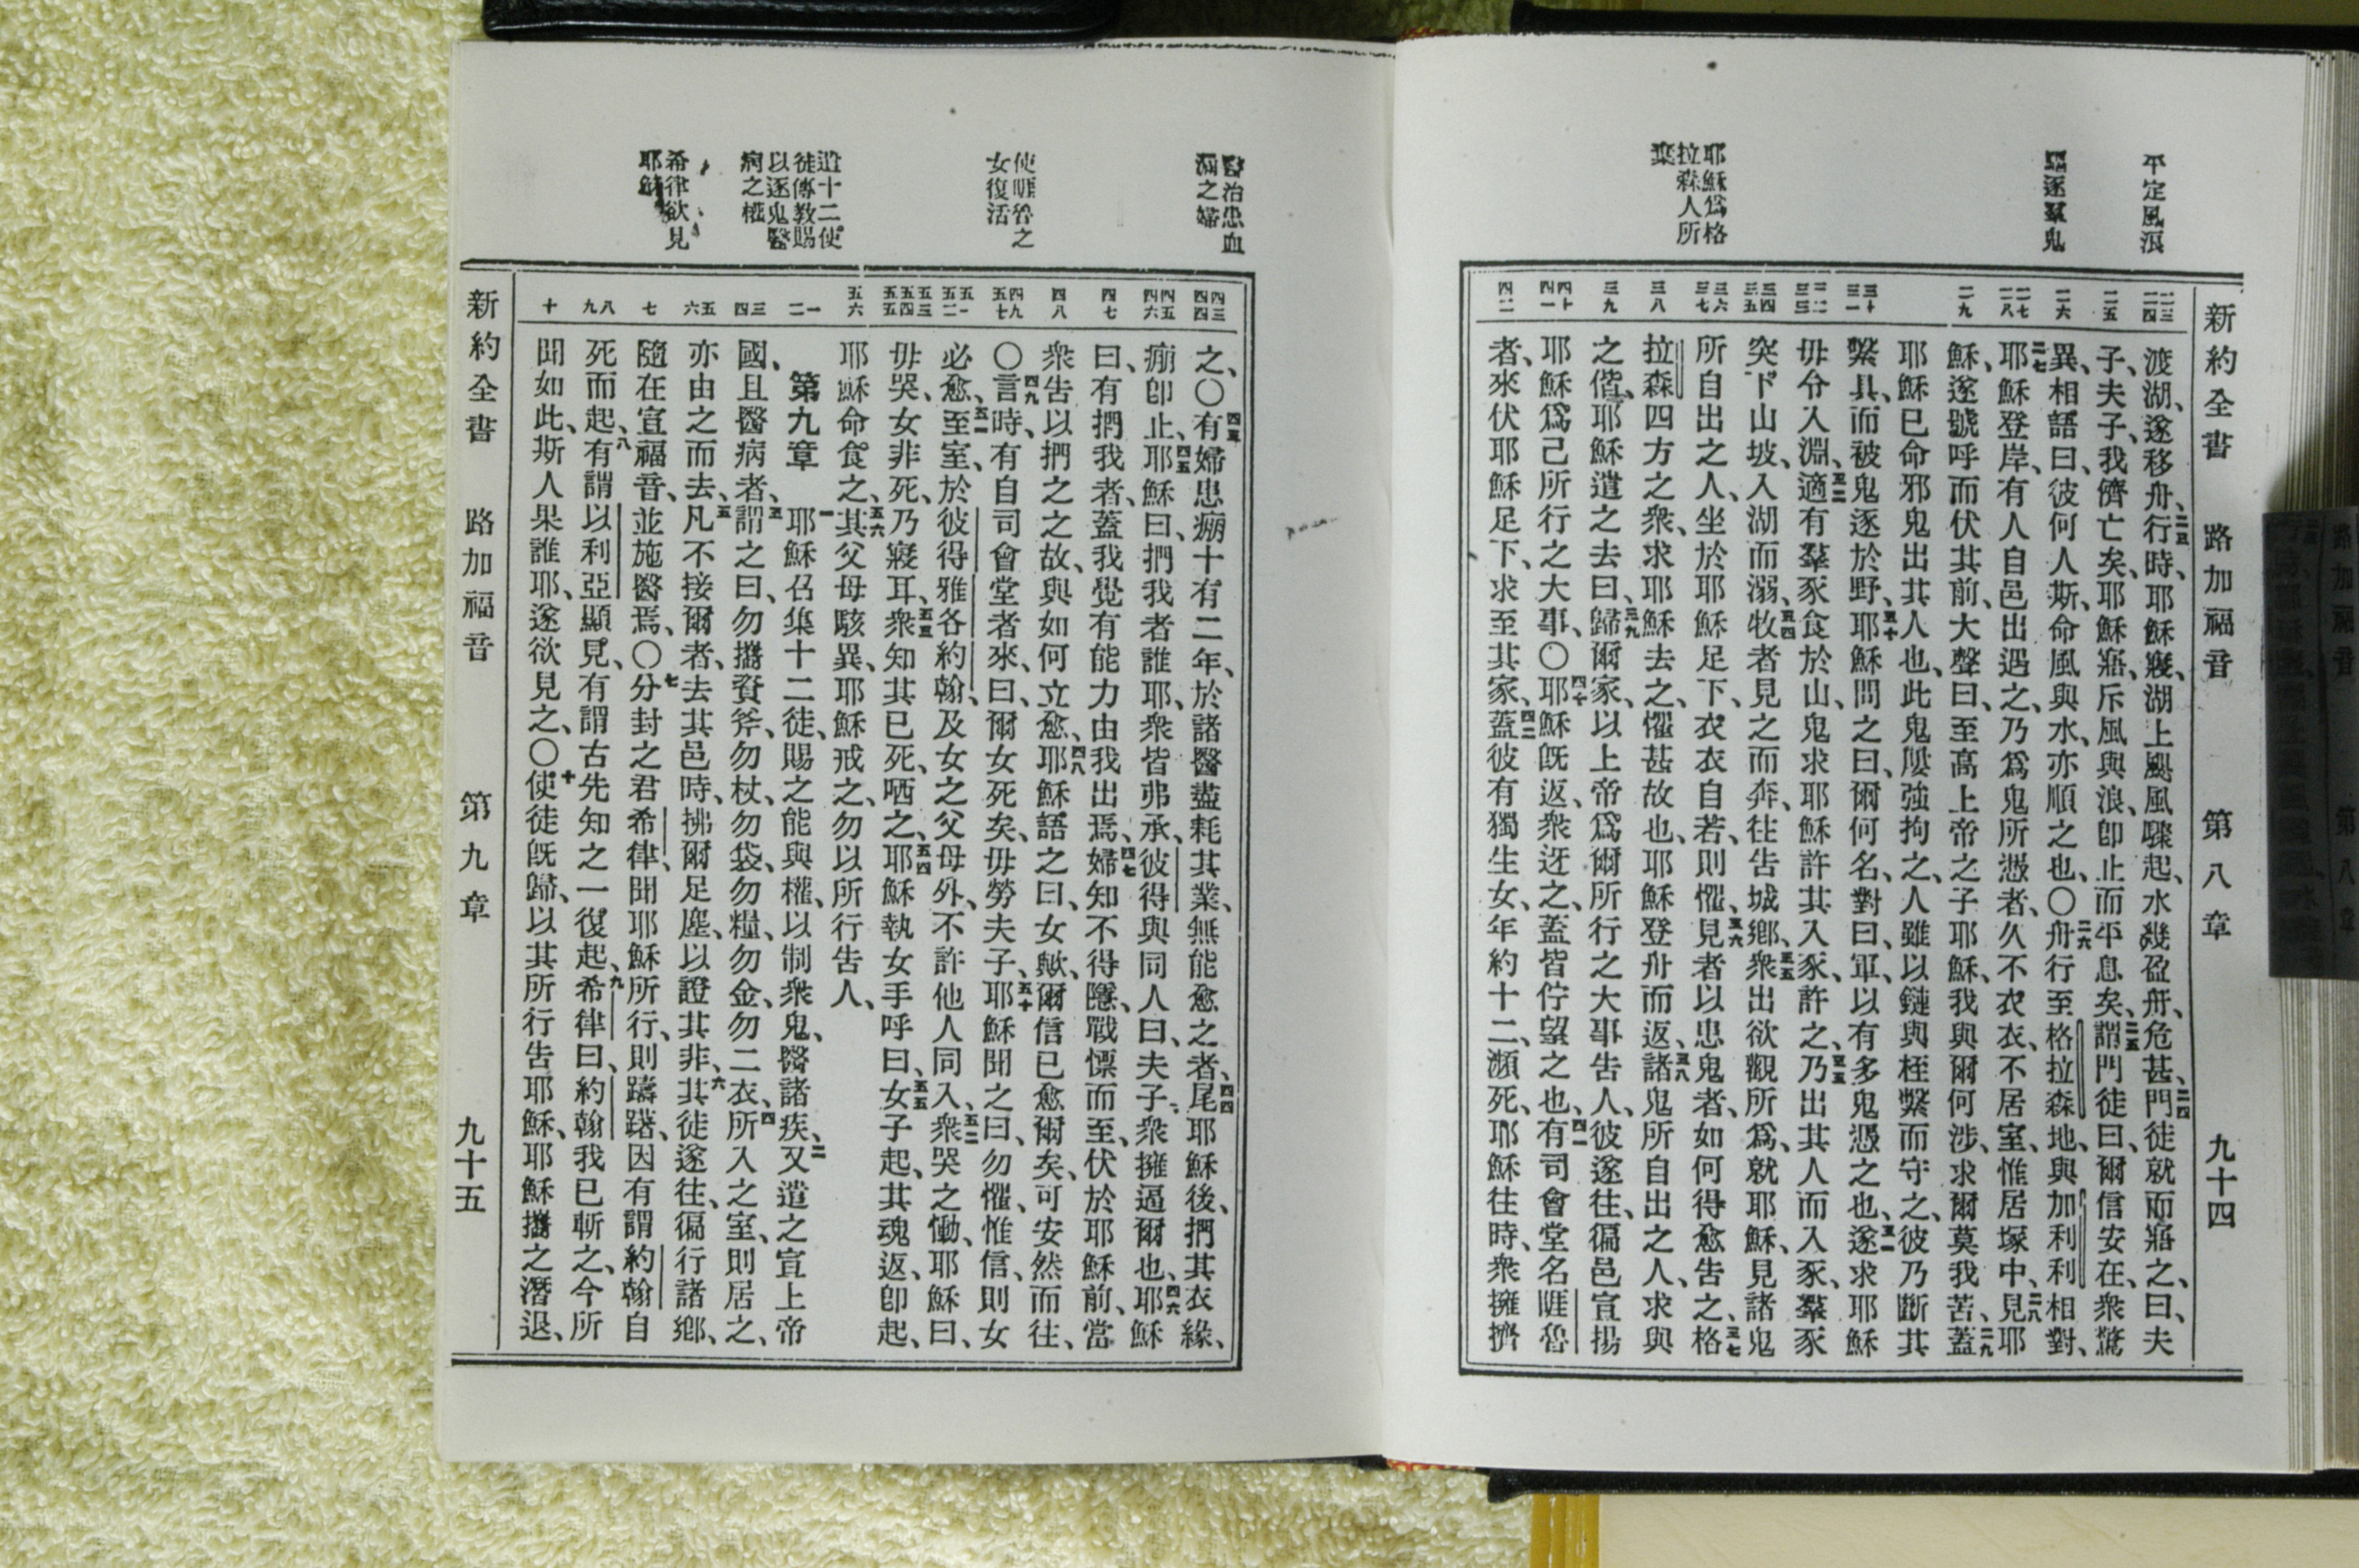 平定風浪
驅逐羣鬼
耶穌爲格
拉森人所
棄
新約全書 路加福音 第八章 九十四
二三 二四
二五
二六
二七 二八
二九
三十 三一
三二 三三
三四 三五
三六 三七
三八
三九
四十 四一
四二
渡湖、遂移舟、二三行時、耶穌寢、湖上颶風驟起、水幾盈舟、危甚、二四門徒就而寤之、曰、夫
子、夫子、我儕亡矣、耶穌寤、斥風與浪、卽止而平息矣、二五謂門徒曰、爾信安在、衆驚
異、相語曰、彼何人斯、命風與水、亦順之也、〇二六舟行至格拉森地、與加利利相對、
二七耶穌登岸、有人自邑出遇之、乃爲鬼所憑者、久不衣衣、不居室、惟居塚中、二八見耶
穌、遂號呼而伏其前、大聲曰、至高上帝之子耶穌、我與爾何涉、求爾莫我苦、二九蓋
耶穌已命邪鬼出其人也、此鬼屢強拘之、人雖以鏈與桎繫而守之、彼乃斷其
繫具、而被鬼逐於野、三十耶穌問之曰、爾何名、對曰、軍、以有多鬼憑之也、三一遂求耶穌
毋令入淵、三二適有羣豕食於山、鬼求耶穌許其入豕、許之、三三乃出其人而入豕、羣豕
突下山坡、入湖而溺、三四牧者見之而奔、往告城鄉、三五衆出欲觀所爲、就耶穌、見諸鬼
所自出之人、坐於耶穌足下、衣衣自若、則懼、三六見者以患鬼者、如何得愈告之、三七格
拉森四方之衆、求耶穌去之、懼甚故也、耶穌登舟而返、三八諸鬼所自出之人、求與
之偕、耶穌遣之去曰、三九歸爾家、以上帝爲爾所行之大事告人、彼遂往、徧邑宣揚
耶穌爲己所行之大事、〇四十耶穌旣返、衆迓之、蓋皆佇望之也、四一有司會堂名睚魯
者、來伏耶穌足下、求至其家、四二蓋彼有獨生女、年約十二、瀕死、耶穌往時、衆擁擠
醫治患血
漏之婦
使睚魯之
女復活
遣十二使
徒傳教賜
以逐鬼醫
病之權
希律欲見
耶穌
四三 四四
四五 四六
四七
四八
四九 五十
五一 五二
五三 五四 五五
五六
一 二
三 四
五 六
七
八 九
十
之、〇四三有婦患痳十有二年、於諸醫盡耗其業、無能愈之者、四四尾耶穌後、捫其衣緣、
痳卽止、四五耶穌曰、捫我者誰耶、衆皆弗承、彼得與同人曰、夫子、衆擁逼爾也、四六耶穌
曰、有捫我者、蓋我覺有能力由我出焉、四七婦知不得隱、戰慄而至、伏於耶穌前、當
衆告以捫之之故、與如何立愈、四八耶穌語之曰、女歟、爾信已愈爾矣、可安然而往、
〇四九言時、有自司會堂者來、曰、爾女死矣、毋勞夫子、五十耶穌聞之曰、勿懼、惟信、則女
必愈、五一至室、於彼得雅各約翰、及女之父母外、不許他人同入、五二衆哭之慟、耶穌曰、
毋哭、女非死、乃寢耳、五三衆知其已死、哂之、五四耶穌執女手呼曰、五五女子起、其魂返、卽起、
耶穌命食之、五六其父母駭異、耶穌戒之、勿以所行告人、
第九章 一耶穌召集十二徒、賜之能與權、以制衆鬼、醫諸疾、二又遣之宣上帝
國、且醫病者、三謂之曰、勿攜資斧、勿杖、勿袋、勿糧、勿金、勿二衣、四所入之室、則居之、
亦由之而去、五凡不接爾者、去其邑時、拂爾足塵、以證其非、六其徒遂往、徧行諸鄉、
隨在宣福音、並施醫焉、〇七分封之君希律、聞耶穌所行、則躊躇、因有謂約翰自
死而起、八有謂以利亞顯見、有謂古先知之一復起、九希律曰、約翰我已斬之、今所
聞如此、斯人果誰耶、遂欲見之、〇十使徒旣歸、以其所行告耶穌、耶穌攜之潛退、
新約全書 路加福音 第九章 九十五